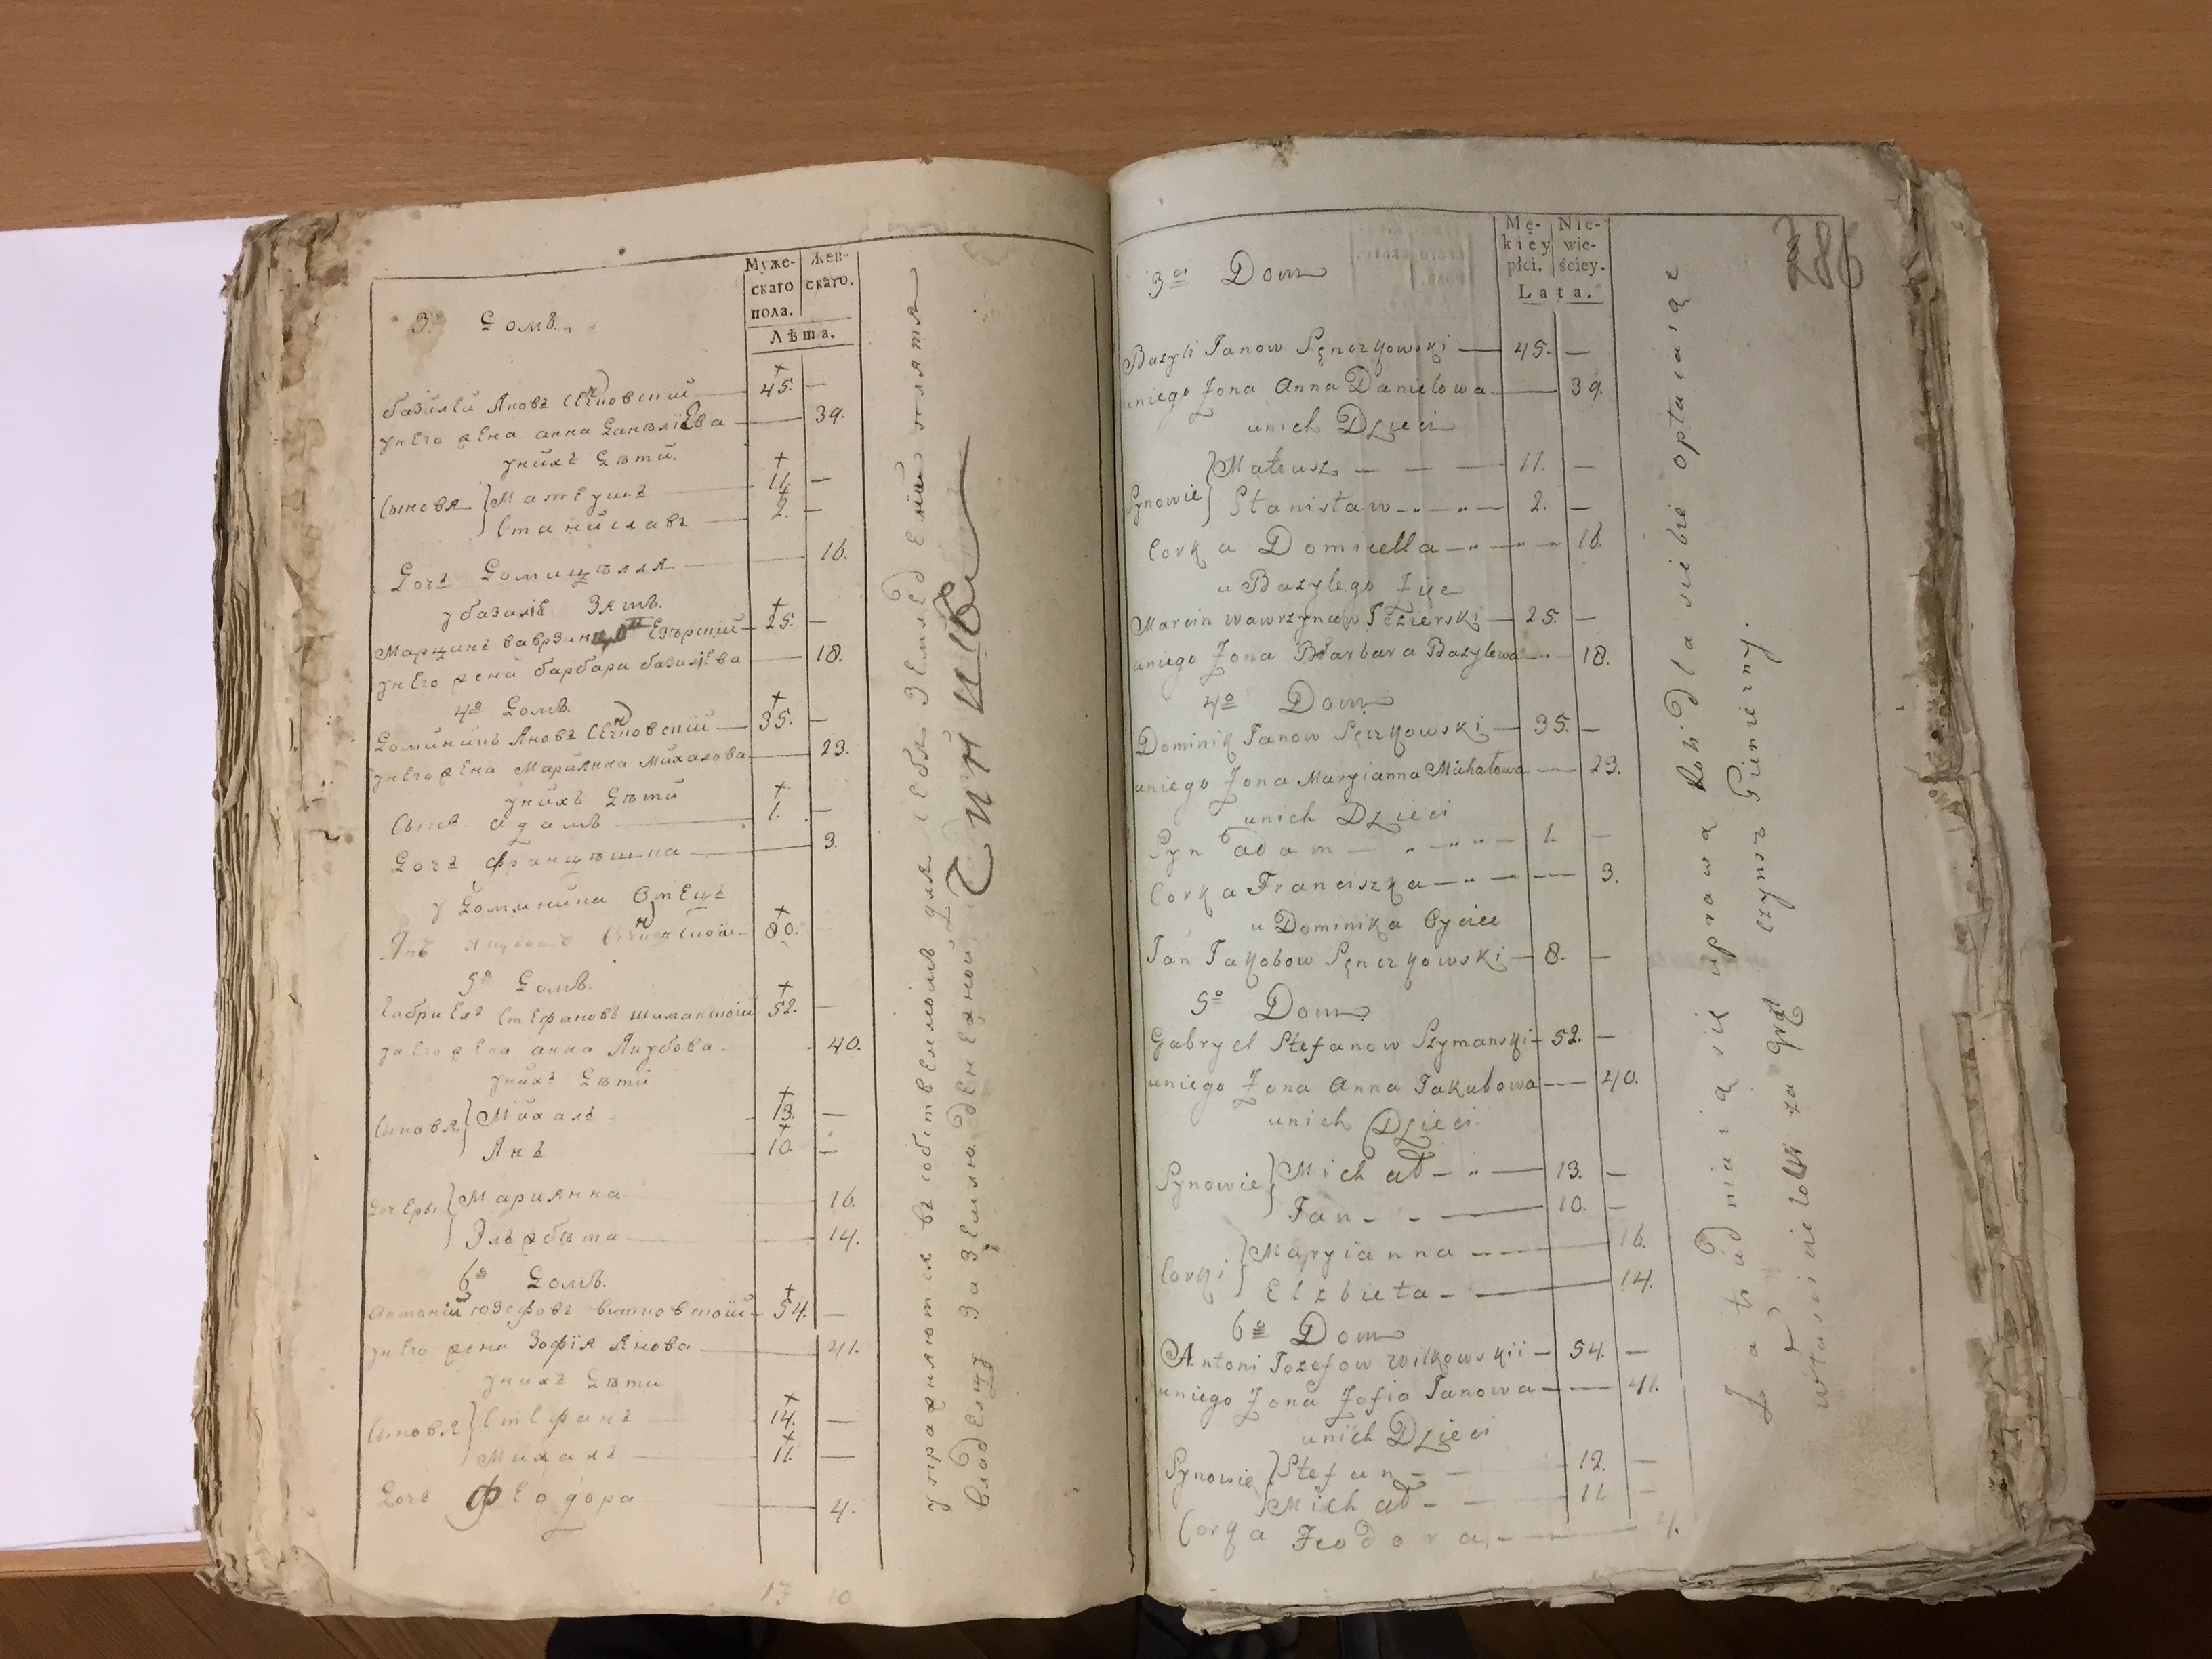 Муже-
скаго
пола.
Жен-
скаго.
Лѣта.
3º Домъ.
базилей Яновъ Сенчковский — 45. —
унего жена анна Данѣлѣева — 39.
унихъ Дѣти.
Сыновя { Матеушъ — 11. —
Станиславъ — 2. —
Дочь Домицѣлля — 16.
у базилiе Зять.
Марцинъ Езѣрский — 25. —
унего жена барбара базилiева — 18.
4º Домъ.
Доминикъ Яновъ Сенчковский — 35. —
унего жена Мариянна Михалова — 23.
унихъ Дѣти
Сынъ адамъ — 1. —
Дочь францѣшка — 3.
у Доминика Отецъ
Янъ 80.
5º Домъ.
Габриелъ Стефановъ шиманский 52. —
унего жена анна Якубова — 40.
унихъ Дѣти
Сыновя { Михалъ 13. —
Янъ 10. —
Дочеры { Мариянна 16.
Элжбѣта — 14.
6º Домъ.
Антоний юзефовъ витковский — 54. —
унего жена Зофiя Янова — 41.
унихъ Дѣти
Сыновя { Стефанъ 14. —
Михалъ — 11. —
Дочь Феодора — 4.
13 10
упражняются въ собственномъ для себя земледелии платя
владелцу за землю денежной
Чиншъ
Mę-
kiey
płci.
Nie-
wie-
ściey.
Lata.
286
3ci Dom
Bazyli Janow Sęnczkowski — 45. —
uniego Żona Anna Danielowa — 39.
unich Dzieci
Synowie { Mateusz — — — 11. —
Stanisław — 2. —
Corka Domicella — 16.
u Bazylego Zięc
Marcin wawrzyncow Jezierski — 25. —
uniego Żona Barbara Bazylewa — 18.
4º Dom
Dominik Janow Sęczkowski — 35. —
uniego Żona Maryianna Michałowa — 23.
unich Dzieci
Syn adam — 1. —
Corka Franciszka — 3.
u Dominika Oyciec
Jan Jakobow Sęnczkowski — 8. —
5º Dom
Gabryel Stefanow Szymanski — 52. —
uniego Żona Anna Jakubowa — 40.
unich Dzieci
Synowie { Michał — 13. —
Jan — 10. —
Corki { Maryianna — 16.
Elzbieta — 14.
6º Dom
Antoni Jozefow Witkowskii — 54. —
uniego Żona Zofia Janowa — 41.
unich Dzieci
Synowie { Stefan — 12. —
Michał — 11 —
Corka Feodora — 4.
Zatrudniaią się uprawą Roli dla siebie opłaciaiąc
własicielowi za grąt Czynsz Pienieżny.